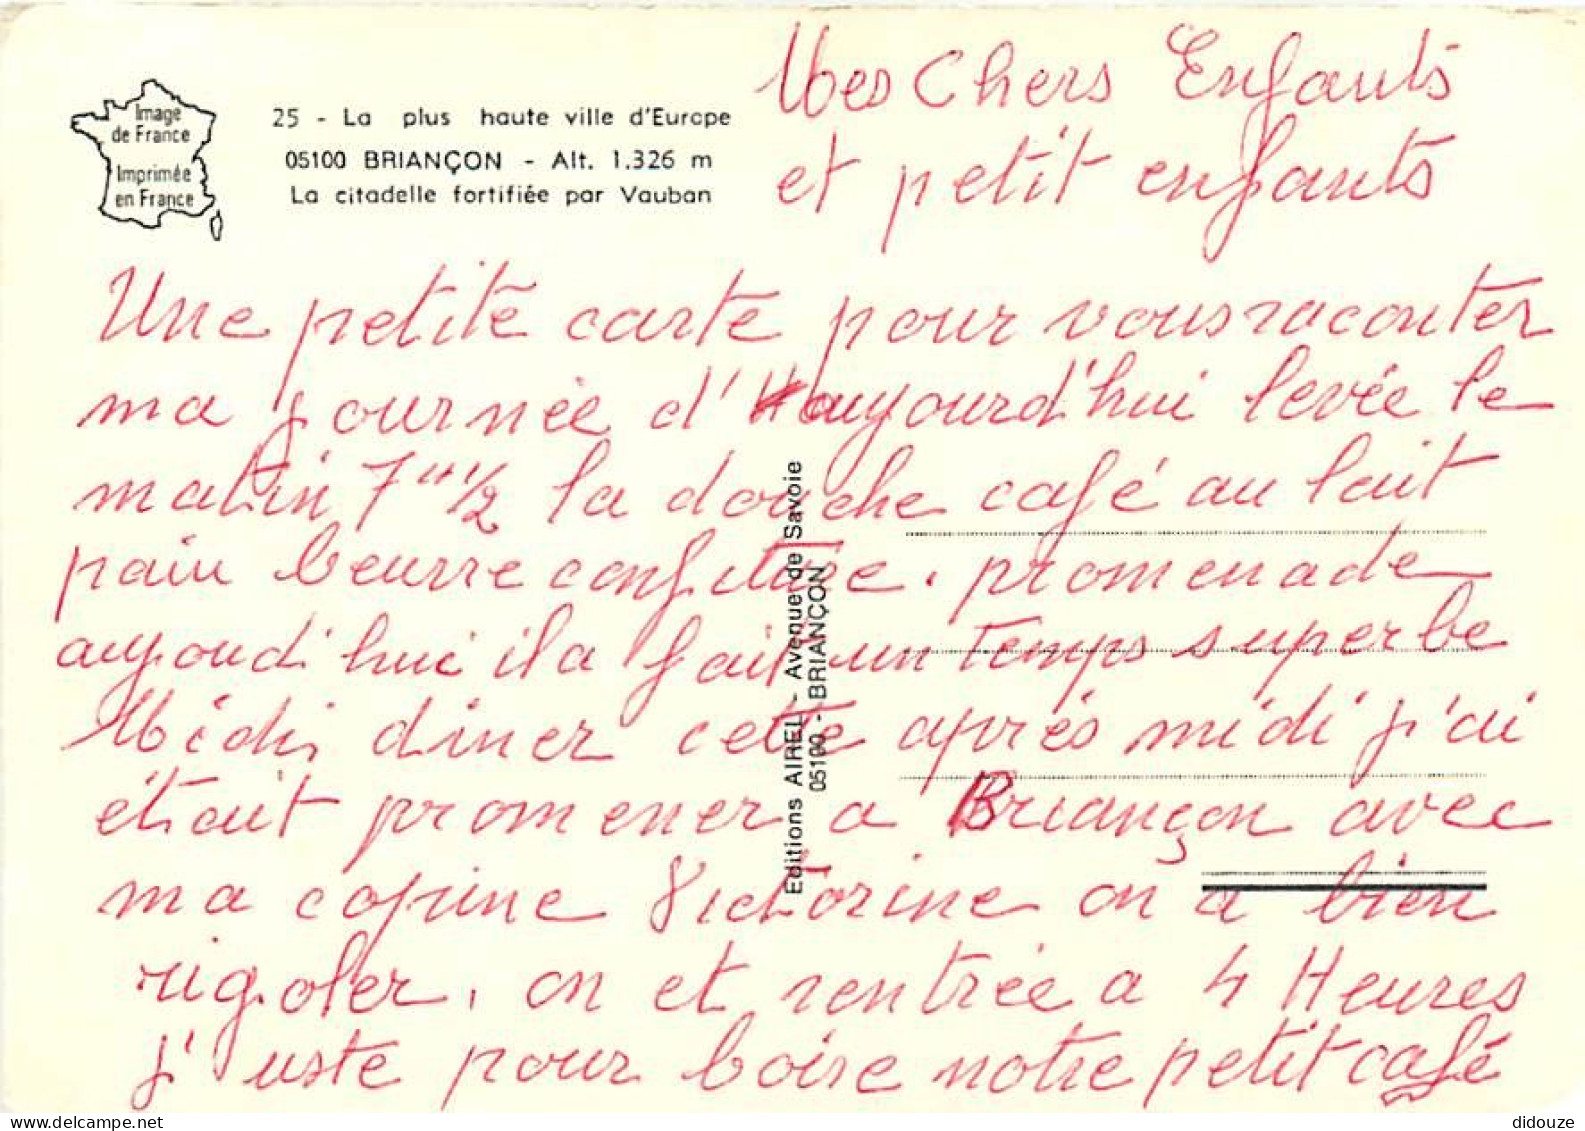 Image
de France
Imprimée
en France
25 - La plus haute ville d'Europe
05100 BRIANÇON - Alt. 1.326 m
La citadelle fortifiée par Vauban
Mes Chers Enfants
et petit enfants
Une petite carte pour vous raconter
ma journée d'aujourd'hui levée le
matin 7 H 1/2 la douche café au lait
pain beurre confiture. promenade
aujourdi hui il a fait un temps superbe
Médi, diner cette après midi j'ai
étiait promener a Briançon avec
ma copine Victorine on a bien
rigoler, on et rentrée a 4 Heures
j'uste pour boire notre petit café
Editions AIREL - Avenue de Savoie
05100 - BRIANÇON
didouze